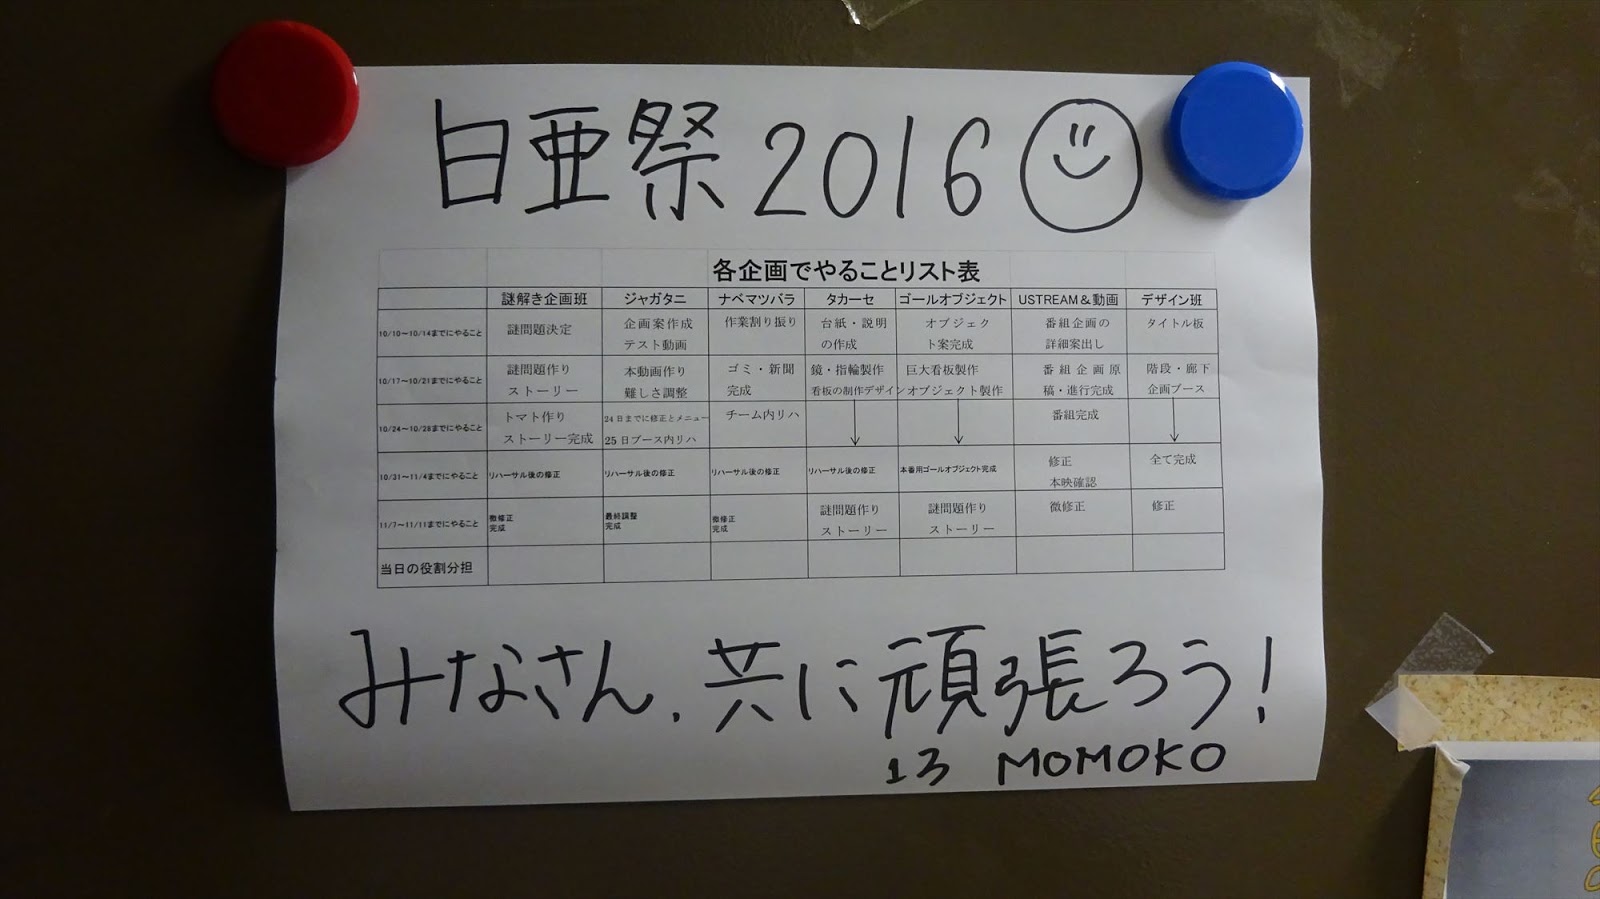 白亜祭2016
各企画でやることリスト表
謎解き企画班 ジャガタニ ナベマツバラ タカーセ ゴールオブジェクト USTREAM&動画 デザイン班
10/10~10/14までにやること 謎問題決定 企画案作成 テスト動画 作業割り振り 台紙・説明 の作成 オブジェク ト案完成 番組企画の 詳細案出し タイトル板
10/17~10/21までにやること 謎問題作り ストーリー 本動画作り 難しさ調整 ゴミ・新聞 完成 鏡・指輪製作 看板の制作デザイン 巨大看板製作 オブジェクト製作 番組企画原 稿・進行完成 階段・廊下 企画ブース
10/24~10/28までにやること トマト作り ストーリー完成 24日までに修正とメニュー 25日ブース内リハ チーム内リハ 番組完成
10/31~11/4までにやること リハーサル後の修正 リハーサル後の修正 リハーサル後の修正 リハーサル後の修正 本番用ゴールオブジェクト完成 修正 本映確認 全て完成
11/7~11/11までにやること 微修正 完成 最終調整 完成 微修正 完成 謎問題作り ストーリー 謎問題作り ストーリー 微修正 修正
当日の役割分担
みなさん、共に頑張ろう!
13 MOMOKO